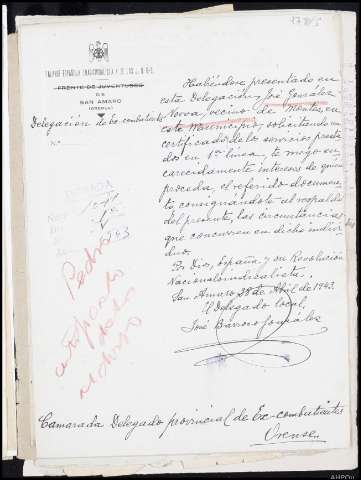 FRENTE DE JUVENTUDES
DE
SAN AMARO
(ORENSE)
Delegación de Excombatientes
N.º
Habiéndose presentado en
esta Delegación José González
Novoa, vecino de
este Municipio, solicitando un
certificado de los servicios presta
dos en 1ª línea, te ruego en
carecidamente intereses de quien
proceda, el referido documen
to consignándote al respaldo
del presente, las circunstancias
que concurren en dicho indivi
duo.
Por Dios, España y su Revolución
Nacionalsindicalista.
San Amaro 28 de Abril de 1943.
El Delegado local,
José Barroso González
Pedro
Camarada Delegado provincial de Ex-combatientes
Orense.
AHPOu